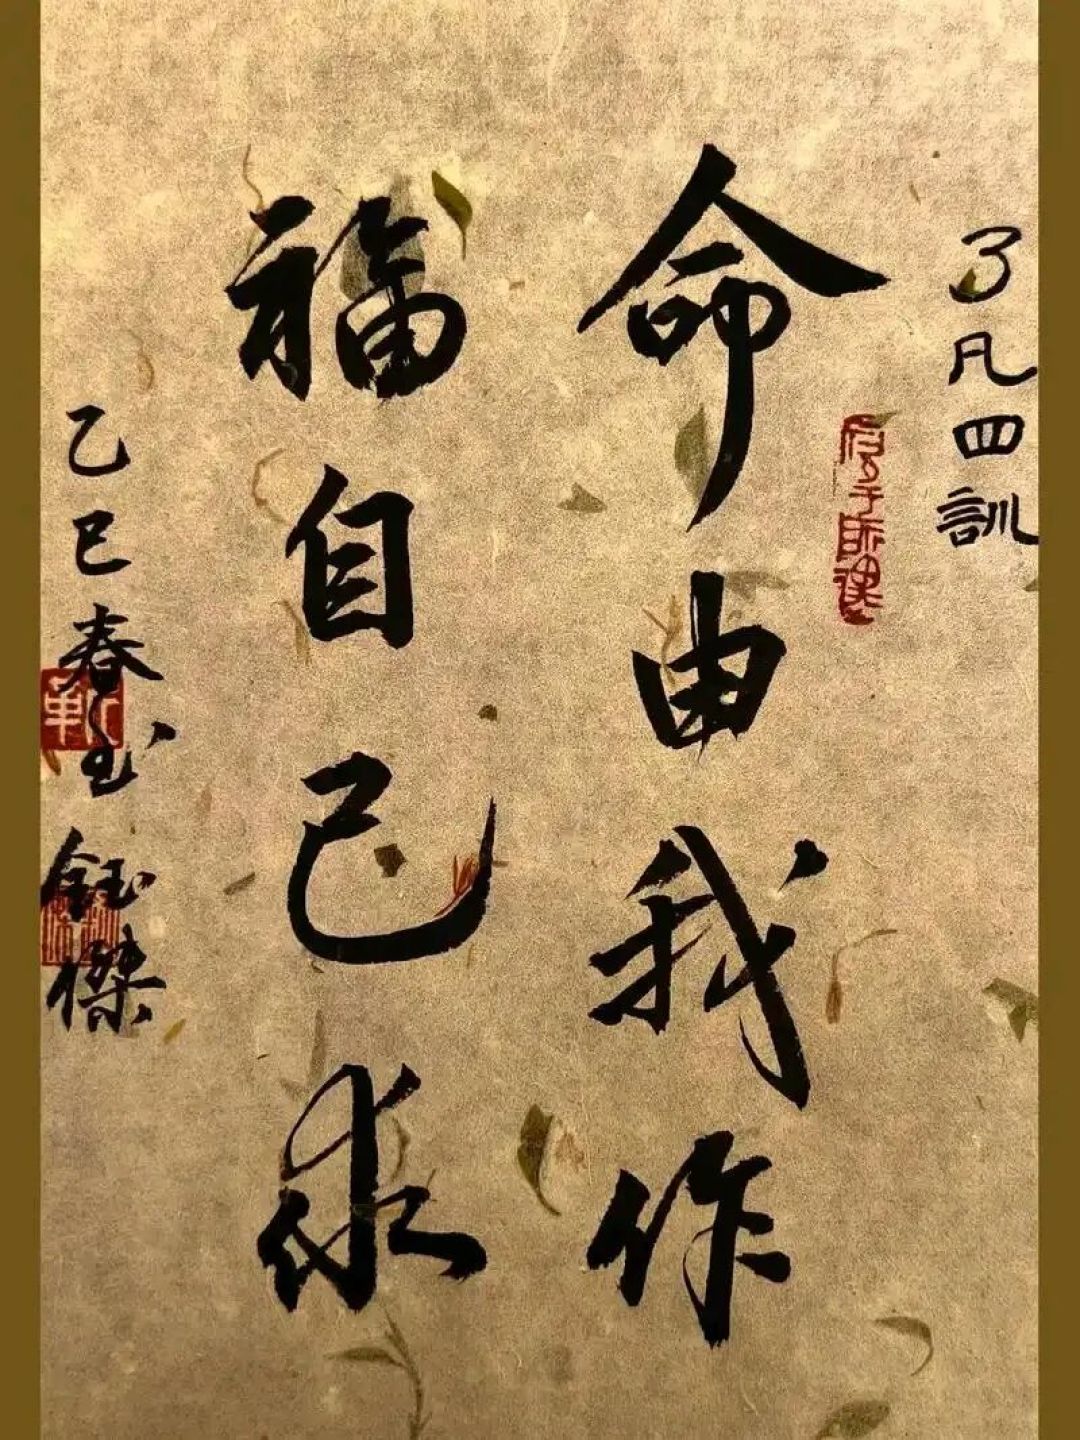 了凡四訓
命由我作
福自己求
乙巳春玉
鈺傑